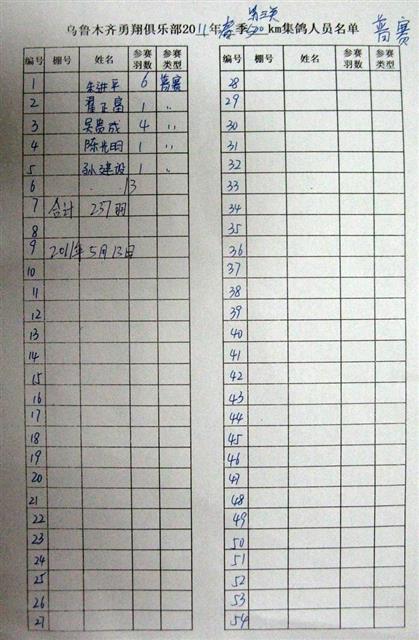 第三页
乌鲁木齐勇翔俱乐部2011年春季500km集鸽人员名单 普赛
编号 棚号 姓名 参赛羽数 参赛类型 编号 棚号 姓名 参赛羽数 参赛类型
1 朱进平 6 普赛 28
2 翟正富 1 〃 29
3 吴贵成 4 〃 30
4 陈光明 1 〃 31
5 孙建设 1 〃 32
6 13 33
7 合计 237羽 34
8 35
9 2011年5月13日 36
10 37
11 38
12 39
13 40
14 41
15 42
16 43
17 44
18 45
19 46
20 47
21 48
22 49
23 50
24 51
25 52
26 53
27 54